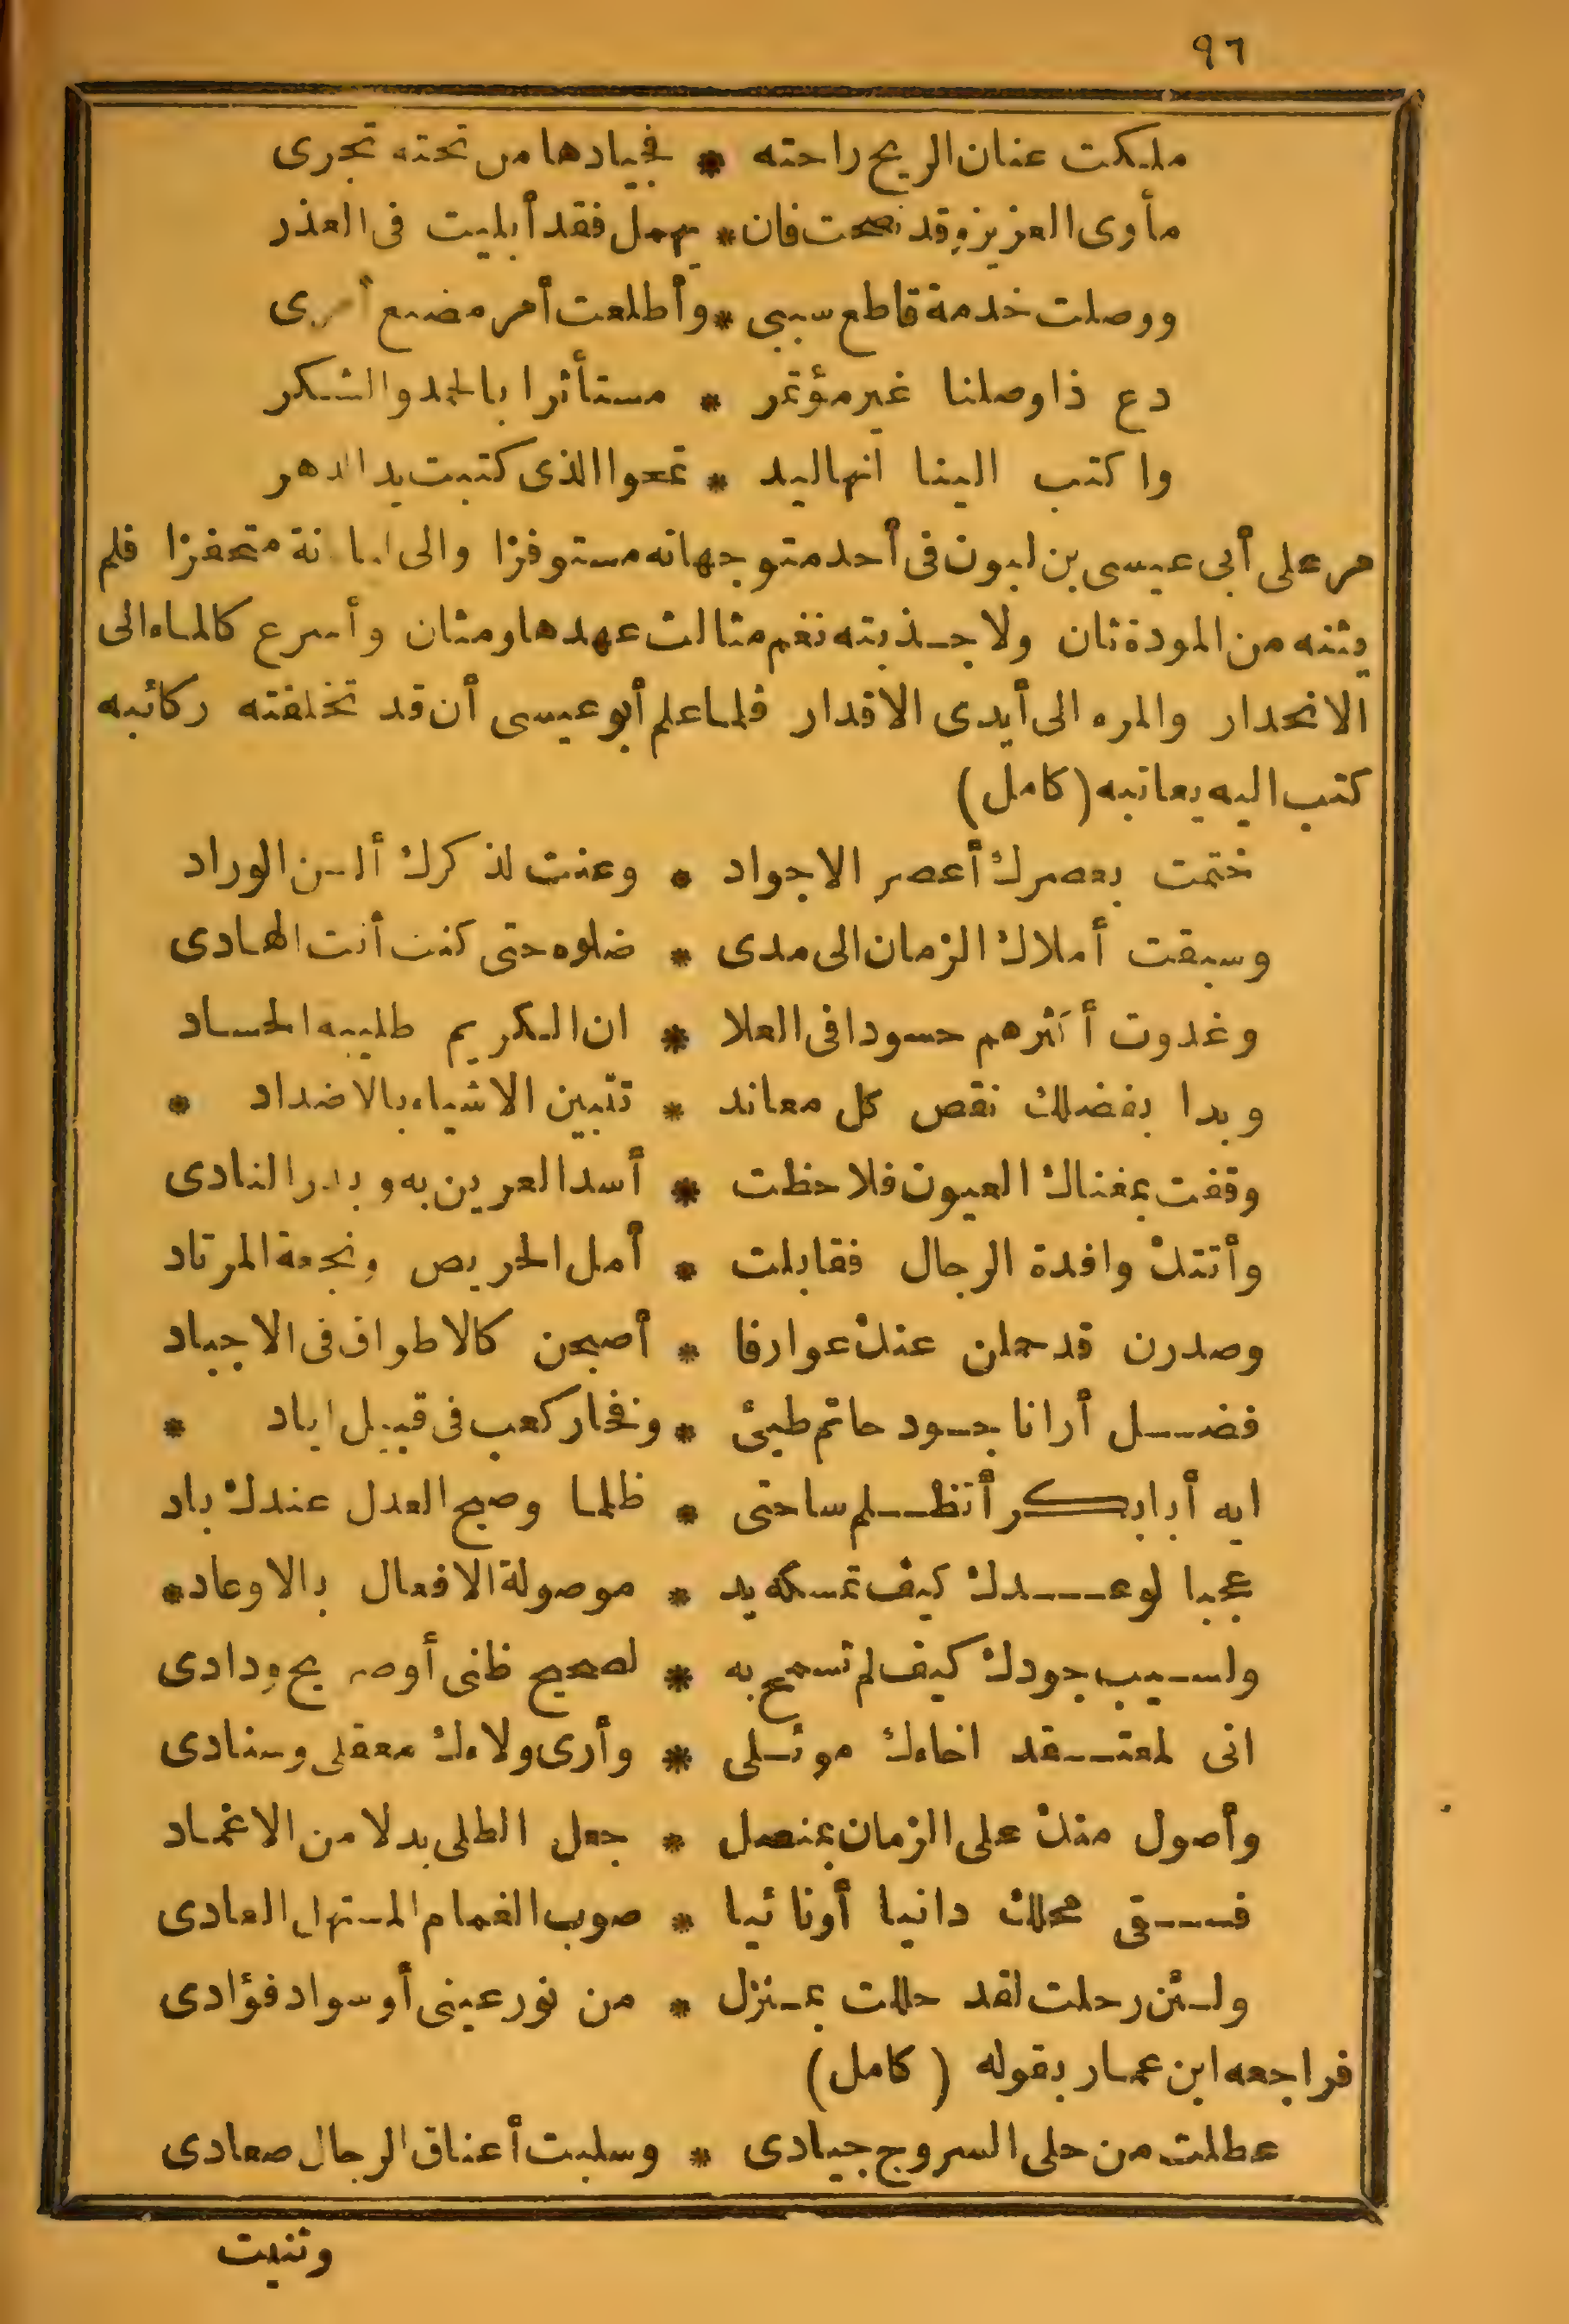 ٩٦
ملكت عنان الريح راحته * فجيادها من تحته تجرى
مأوى العزيزة قد نصحت فان * يهمل فقد أبليت فى العذر
ووصلت خدمة قاطع سببى * وأطلعت أمر مضيع أمرى
دع ذا وصلنا غير مؤتمر * مستأثرا بالحمد والشكر
واكتب الينا انها ليد * تمحوا الذى كتبت يد الدهر
مر على أبى عيسى بن لبون فى أحد متوجهاته مستوفزا والى متحفزا فلم
يثنه من المودة ثان ولا جذبته نغم مثالث عهدها ومثان وأسرع كالماء الى
الانحدار والمره الى أيدى الاقدار فلما علم أبو عيسى أن قد تخلفته ركائبه
كتب اليه يعاتبه (كامل)
ختمت بعصرك أعصر الاجواد * وعنت لذكرك ألسن الوراد
وسبقت أملاك الزمان الى مدى * ضلوه حتى كنت أنت الهادى
وغدوت أكثرهم حسودا فى العلا * ان الكريم طليبه الحساد
وبدا بفضلك نقص كل معاند * تتبين الاشياء بالاضداد *
وقفت بمغناك العيون فلاحظت * أسد العرين به وبدر النادى
وأتتك وافدة الرجال فقابلت * أمل الحريص ونجعة المرتاد
وصدرن قد حملن عنك عوارفا * أصبحن كالاطواف فى الاجياد
فضل أرانا جود حاتم طيئ * وفخار كعب فى قبيل اياد *
ايه أبا بكر أتظلم ساحتى * ظلما وصبح العدل عندك باد
عجبا لوعدك كيف تمسكه يد * موصولة الافعال بالاوعاد *
ولسيب جودك كيف لم تسمح به * لصحيح ظنى أو صريح ودادى
انى لمعتقد اخاءك موئلى * وأرى ولاءك معقلى وسنادى
وأصول منك على الزمان بمنصل * جعل الطلى بدلا من الاغماد
فسقى محلك دانيا أو نائيا * صوب الغمام المستهل الغادى
ولئن رحلت لقد حللت بمنزل * من نور عينى أو سواد فؤادى
فراجعه ابن عمار بقوله (كامل)
عطلت من حلى السروج جيادى * وسلبت أعناق الرجال صعادى
وثنيت